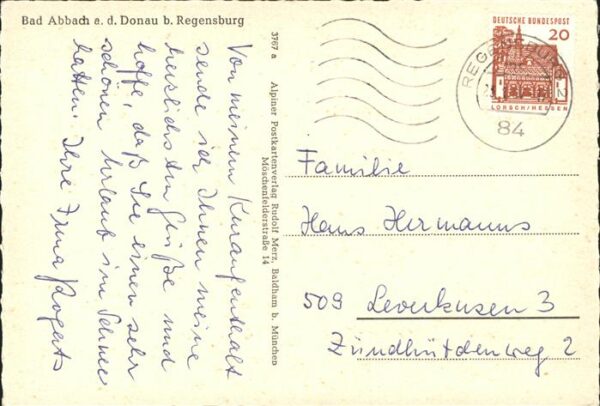 Bad Abbach a. d. Donau b. Regensburg
Von meinem Kuraufenthalt
sende ich Ihnen meine
herzlichsten Grüße und
hoffe, daß Sie einen sehr
schönen Urlaub im Schnee
hatten. Ihre Irma Rogats
3767 a Alpiner Postkartenverlag Rudolf Merz, Baldham b. München
Möschenfelderstraße 14
DEUTSCHE BUNDESPOST
20
LORSCH/HESSEN
REGENSBURG
84
Familie
Hans Hermanns
509 Leverkusen 3
Zündhütchenweg 2